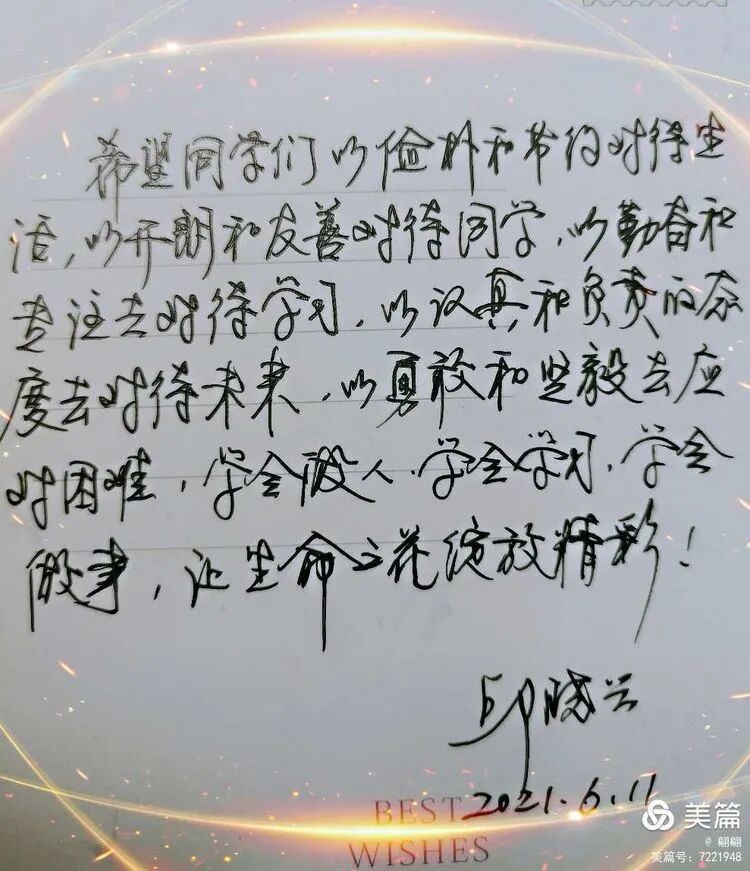 希望同学们以俭朴和节约对待生
活,以开朗和友善对待同学,以勤奋和
专注去对待学习,以认真和负责的态
度去对待未来,以勇敢和坚毅去应
对困难,学会做人.学会学习.学会
做事,让生命之花绽放精彩!
邱晓兰
2021.6.11
BEST
WISHES
美篇
@ 翩翩
美篇号:7221948